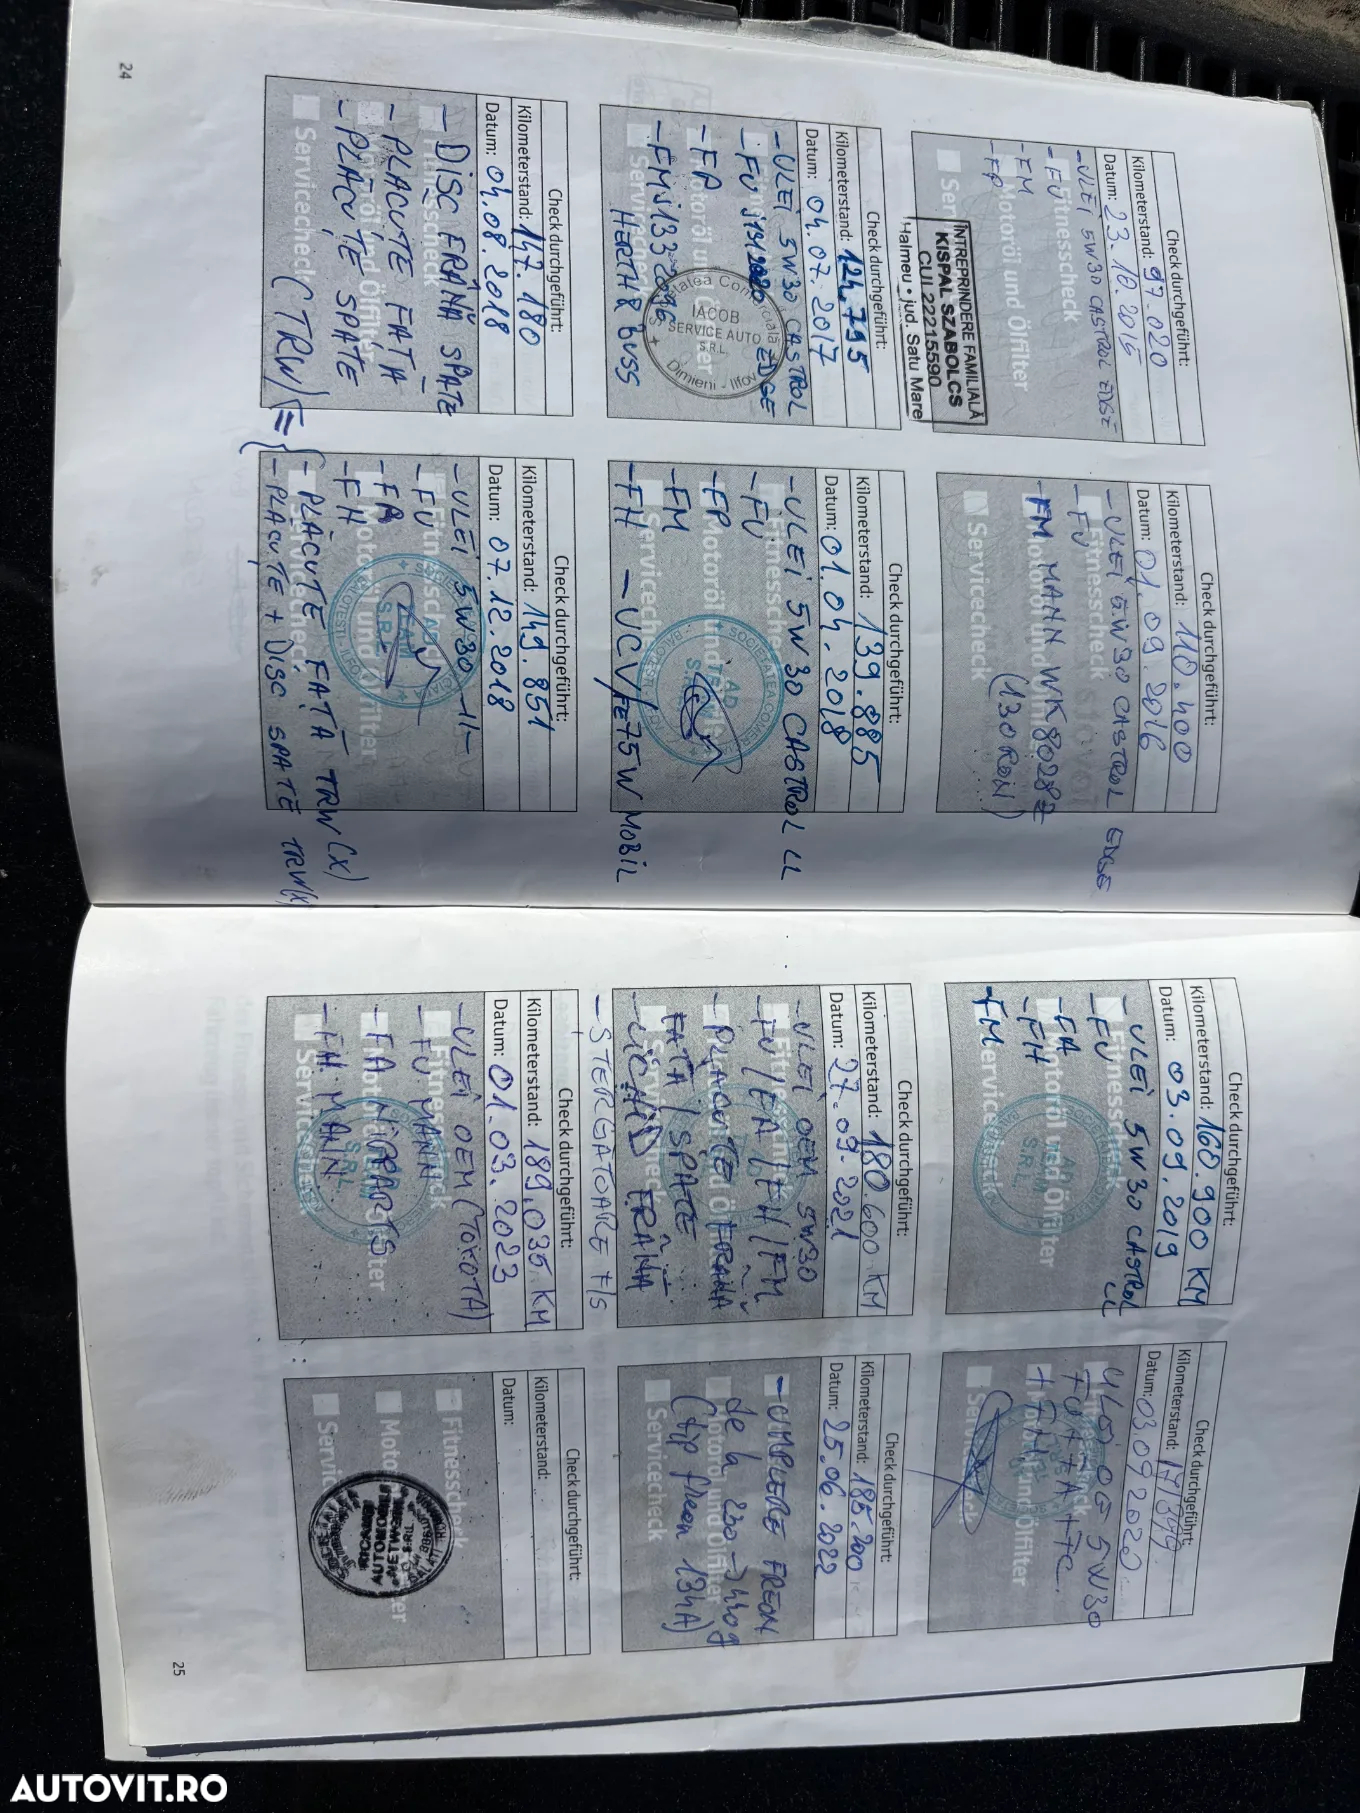 24
Check durchgeführt:
Kilometerstand: 99.020
Datum: 23.10.2015
- ULEI 5W30 CASTROL EDGE
- FU
- FM
- FP
Fitnesscheck
Motoröl und Ölfilter
ÎNTREPRINDERE FAMILIALĂ
KISPAL SZABOLCS
CUI 22215590
Halmeu • jud. Satu Mare
Check durchgeführt:
Kilometerstand: 110.400
Datum: 01.09.2016
- ULEI 5W30 CASTROL EDGE
- FU
- FM MANN WK8028Z
(130 RON)
Fitnesscheck
Motoröl und Ölfilter
Servicecheck
Check durchgeführt:
Kilometerstand: 124.795
Datum: 04.07.2017
- ULEI 5W30 CASTROL EDGE
- FU
- FP
- FM
HERTH & BUSS
Motoröl und Ölfilter
Servicecheck
IACOB
SERVICE AUTO
S.R.L.
Dimieni - Ilfov
Check durchgeführt:
Kilometerstand: 139.885
Datum: 01.04.2018
- ULEI 5W30 CASTROL LL
- FU
- FP
- FM
- FH - UCV/FE75W MOBIL
Fitnesscheck
Motoröl und Ölfilter
Servicecheck
Check durchgeführt:
Kilometerstand: 147.180
Datum: 04.08.2018
- DISC FRÂNĂ SPATE
- PLĂCUȚE FAȚĂ
- PLĂCUȚE SPATE
(TRW)
Fitnesscheck
Motoröl und Ölfilter
Servicecheck
Check durchgeführt:
Kilometerstand: 149.851
Datum: 07.12.2018
- ULEI 5W30 -11-
- FU
- FP
- FH
- PLĂCUȚE FAȚĂ TRW (X)
- PLĂCUȚE + DISC SPATE TRW (X)
Fitnesscheck
Motoröl und Ölfilter
Servicecheck
Check durchgeführt:
Kilometerstand: 160.900 KM
Datum: 03.09.2019
- ULEI 5W30 CASTROL LL
- FU
- FA
- FH
- FM
Fitnesscheck
Motoröl und Ölfilter
Servicecheck
Check durchgeführt:
Kilometerstand:
Datum: 03.09.2020
5W30
Motoröl und Ölfilter
Check durchgeführt:
Kilometerstand: 180.600 KM
Datum: 27.09.2021
- ULEI OEM 5W30
- FU/FA/FH/FM
- PLĂCUȚE FRÂNĂ
FAȚĂ/SPATE
- LICHID FRÂNĂ
- STERGATOARE F/S
Fitnesscheck
Motoröl und Ölfilter
Servicecheck
Check durchgeführt:
Kilometerstand: 185.200
Datum: 25.06.2022
- UMPLERE FREON
de la 230 → 440g
(tip freon 134A)
Fitnesscheck
Motoröl und Ölfilter
Servicecheck
Check durchgeführt:
Kilometerstand: 189.035 KM
Datum: 01.03.2023
- ULEI OEM (TOYOTA)
- FU MANN
- FA NIPPARTS
- FH MANN
Fitnesscheck
Motoröl und Ölfilter
Servicecheck
Check durchgeführt:
Kilometerstand:
Datum:
Fitnesscheck
25
AUTOVIT.RO